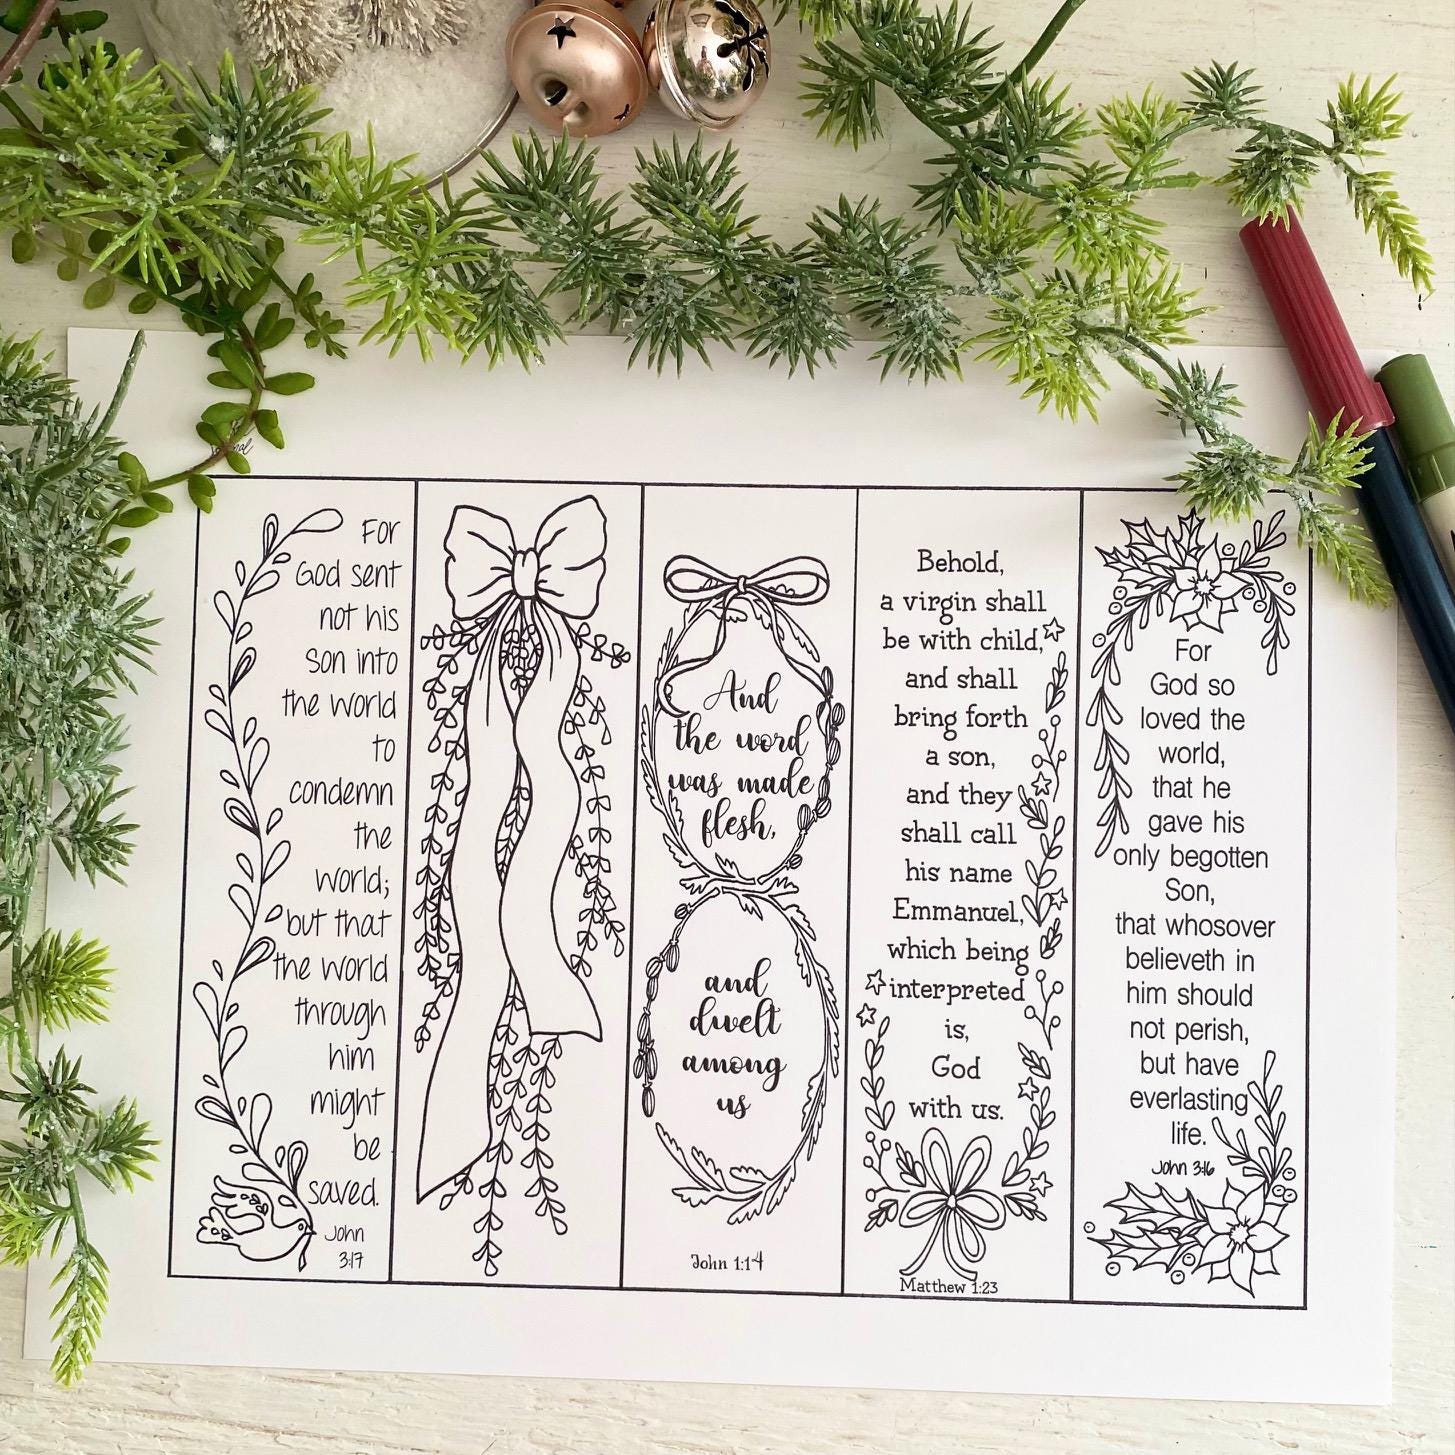 For
God sent
not his
son into
the world
to
condemn
the
world;
but that
the world
through
him
might
be
saved.
John
3:17
And
the word
was made
flesh,
and
dwelt
among
us
John 1:14
Behold,
a virgin shall
be with child,
and shall
bring forth
a son,
and they
shall call
his name
Emmanuel,
which being
interpreted
is,
God
with us.
Matthew 1:23
For
God so
loved the
world,
that he
gave his
only begotten
Son,
that whosover
believeth in
him should
not perish,
but have
everlasting
life.
John 3:16